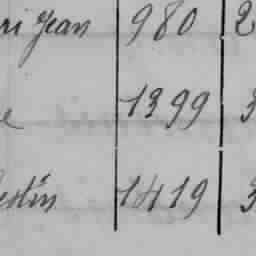 ri Jean 980 2
e 1399 3
estin 1419 3